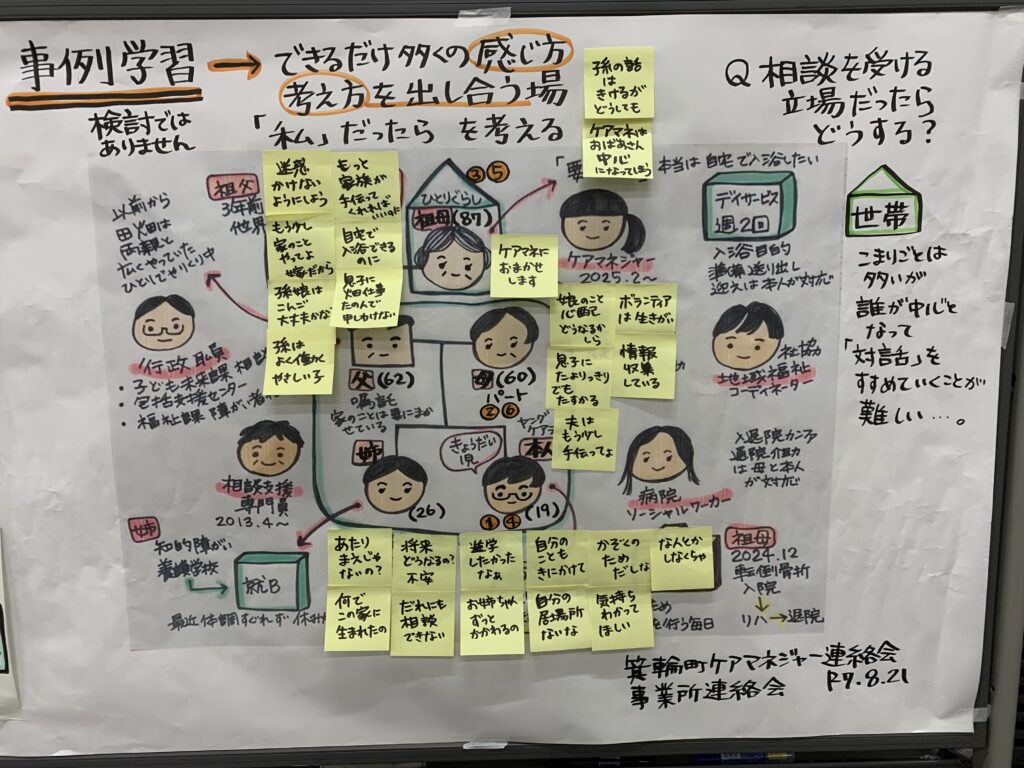 事例学習 → できるだけ多くの感じ方
考え方を出し合う場
検討では
ありません
「私」だったら を考える
Q 相談を受ける
立場だったら
どうする?
孫の話
は
きけるが
どうしても
ケアマネは
おばあさん
中心
になってしまう
本当は自宅で入浴したい
祖父
3年前
他界
以前から
田畑は
広くやっていた
ひとりでせっせり中
迷惑
かけない
ようにしよう
もっと
家族が
手伝って
くれれば
いいのに
もう少し
家のこと
やってよ
嫁だから
自宅で
入浴できる
のに
孫娘は
こんご
大丈夫かな
息子に
畑仕事
たのんで
申しわけない
孫は
よく働く
やさしい子
③⑤
ひとりぐらし
祖母(87)
ケアマネに
おまかせ
します
ケアマネジャー
2025.2〜
デイサービス
週2回
入浴目的
準備送り出し
迎えは本人が対応
世帯
こまりごとは
多いが
誰が中心と
なって
「対話」を
すすめていくことが
難しい…。
行政職員
・子ども未来課
・包括支援センター
・福祉課 障がい
父(62)
嘱託
家のことは妻にまか
せている
母(60)
パート
②⑥
娘のこと
心配
どうなるか
しら
ボランティア
は生きがい
息子に
たよりっきり
でも
たすかる
情報
収集
している
夫は
もう少し
手伝ってよ
社協
地域福祉
コーディネーター
相談支援
専門員
2013.4〜
姉
(26)
きょうだい
児
ヤング
ケアラ
本人
(19)
①④
病院
ソーシャルワーカー
入退院カンファ
退院介助
は母と本人
が対応
姉
知的障がい
養護学校
就B
最近体調すぐれず 休み
あたり
まえじゃ
ないの?
将来
どうなるの?
不安
進学
したかった
なぁ
自分の
ことも
きにかけて
かぞくの
ため
だしな
なんとか
しなくちゃ
何で
この家に
生まれたの
だれにも
相談
できない
お姉ちゃん
ずっと
かかわるの
自分の
居場所
ないな
気持ち
わかって
ほしい
を行う毎日
祖母
2024.12
転倒骨折
入院
↓
リハ→退院
箕輪町ケアマネジャー連絡会
事業所連絡会 R7.8.21